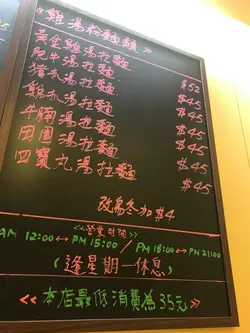 《雞湯粉麵類》
黃金雞湯拉麵 $52
肥牛湯拉麵 $45
豬扒湯拉麵 $45
雞扒湯拉麵 $45
牛腩湯拉麵 $45
田園湯拉麵 $45
四寶丸湯拉麵 $45
改烏冬加$4
<<營業時間>>
AM 12:00 ↔ PM 15:00 / PM 18:00 ↔ PM 21:00
(逢星期一休息)
<<本店最低消費為35元>>